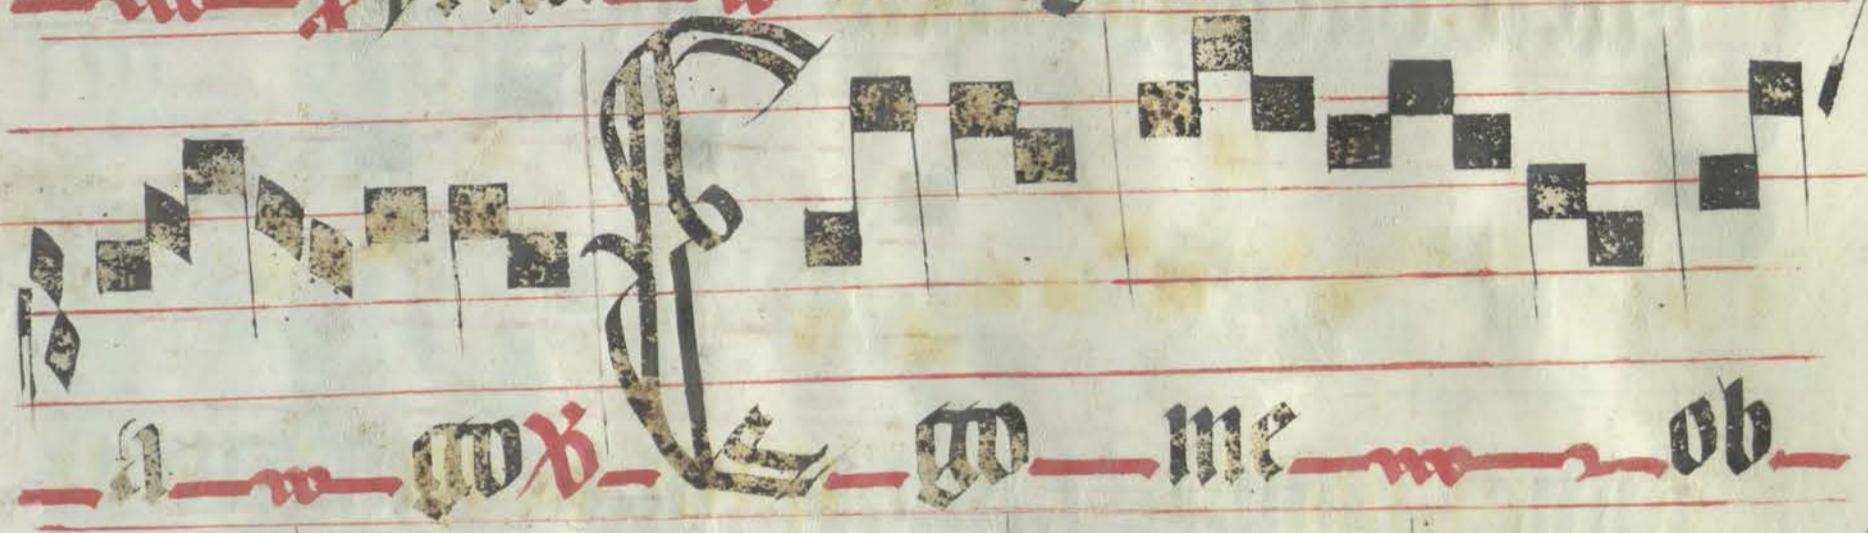 a go ℟ E go me ob